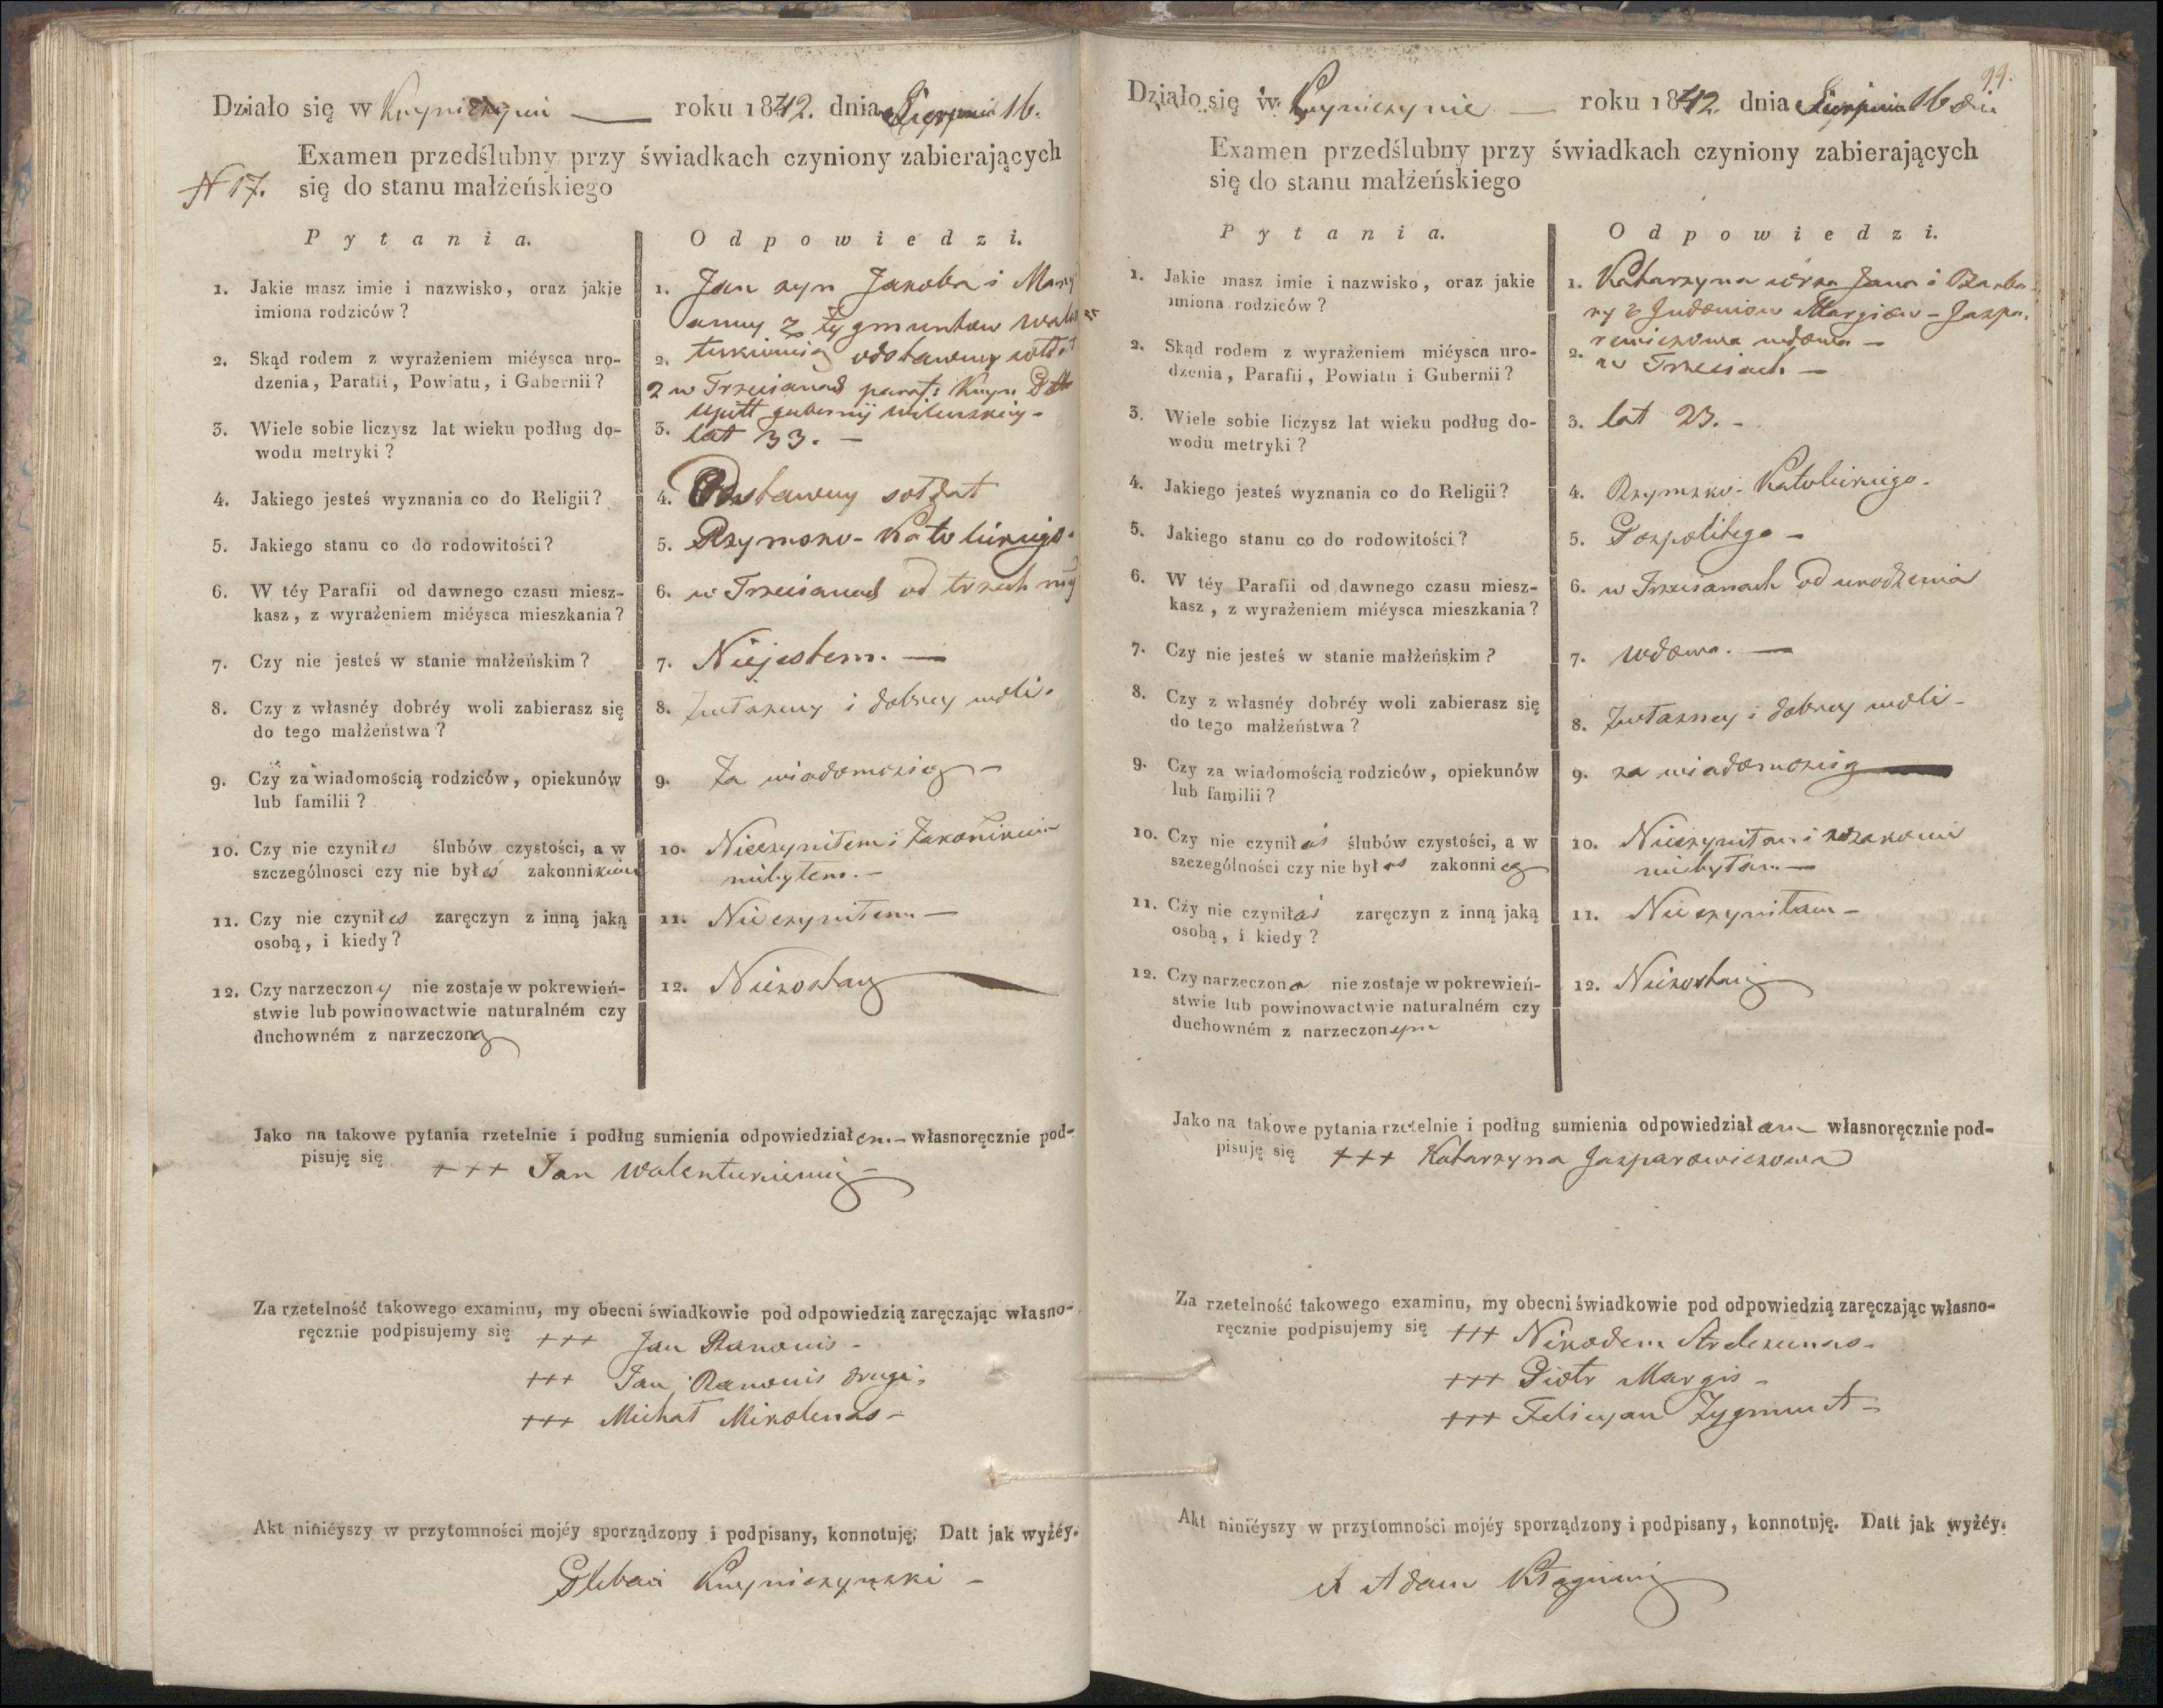 Działo się w Knyniczynie — roku 1842. dnia Sierpnia 16.
N 17.
Examen przedślubny przy świadkach czyniony zabierających
się do stanu małżeńskiego
Pytania. Odpowiedzi.
1. Jakie masz imie i nazwisko, oraz jakie
imiona rodziców?
1. Jan syn Jakoba i Mary
anny z Zygmuntow
odstawny sołdat
2. Skąd rodem z wyrażeniem miéysca uro-
dzenia, Parafii, Powiatu, i Gubernii?
2 w Trzcianach paraf:
Upitt gubernij wilenskiey -
3. Wiele sobie liczysz lat wieku podług do-
wodu metryki?
3. lat 33. —
4. Jakiego jesteś wyznania co do Religii?
4. Odstawny sołdat
5. Jakiego stanu co do rodowitości?
5. Rzymsko-Katolickiego.
6. W téy Parafii od dawnego czasu miesz-
kasz, z wyrażeniem miéysca mieszkania?
6. w Trzcianach od trzech
7. Czy nie jesteś w stanie małżeńskim?
7. Niejestem. —
8. Czy z własnéy dobréy woli zabierasz się
do tego małżeństwa?
8. Zwłasney i dobrey woli.
9. Czy za wiadomością rodziców, opiekunów
lub familii?
9. Za wiadomością —
10. Czy nie czyniłeś ślubów czystości, a w
szczególnosci czy nie byłeś zakonnikiem
10. Nieczyniłem i Zakonnikiem
niebyłem. —
11. Czy nie czyniłeś zaręczyn z inną jaką
osobą, i kiedy?
11. Nieczyniłem —
12. Czy narzeczony nie zostaje w pokrewień-
stwie lub powinowactwie naturalném czy
duchowném z narzeczoną
12. Niezostaię
Jako na takowe pytania rzetelnie i podług sumienia odpowiedziałem — własnoręcznie pod-
pisuję się +++ Jan Walentukiewicz
Za rzetelność takowego examinu, my obecni świadkowie pod odpowiedzią zaręczając własno-
ręcznie podpisujemy się +++ Jan
+++ Jan drugi.
+++ Michał Mikolenas —
Akt niniéyszy w przytomności mojéy sporządzony i podpisany, konnotuję. Datt jak wyżéy.
Pleban Knyniczynski —
99.
Działo się w Knyniczynie — roku 1842. dnia Sierpnia 16 dnia
Examen przedślubny przy świadkach czyniony zabierających
się do stanu małżeńskiego
Pytania. Odpowiedzi.
1. Jakie masz imie i nazwisko, oraz jakie
imiona rodziców?
1. Katarzyna córka Jana i Barba-
ry z Margiow - Jaspa-
rewiczowa wdowa —
2. Skąd rodem z wyrażeniem miéysca uro-
dzenia, Parafii, Powiatu i Gubernii?
2. w Trzcianach —
3. Wiele sobie liczysz lat wieku podług do-
wodu metryki?
3. lat 23. —
4. Jakiego jesteś wyznania co do Religii?
4. Rzymsko-Katolickiego.
5. Jakiego stanu co do rodowitości?
5. Pospolitego —
6. W téy Parafii od dawnego czasu miesz-
kasz, z wyrażeniem miéysca mieszkania?
6. w Trzcianach od urodzenia
7. Czy nie jesteś w stanie małżeńskim?
7. wdowa. —
8. Czy z własnéy dobréy woli zabierasz się
do tego małżeństwa?
8. Zwłasney i dobrey woli —
9. Czy za wiadomością rodziców, opiekunów
lub familii?
9. za wiadomością —
10. Czy nie czyniłaś ślubów czystości, a w
szczególności czy nie byłaś zakonnicą
10. Nieczyniłam i
niebyłam —
11. Czy nie czyniłaś zaręczyn z inną jaką
osobą, i kiedy?
11. Nieczyniłam —
12. Czy narzeczona nie zostaje w pokrewień-
stwie lub powinowactwie naturalném czy
duchowném z narzeczonym
12. Niezostaię
Jako na takowe pytania rzetelnie i podług sumienia odpowiedziałam — własnoręcznie pod-
pisuję się +++ Katarzyna Jasparowiczowa
Za rzetelność takowego examinu, my obecni świadkowie pod odpowiedzią zaręczając własno-
ręcznie podpisujemy się +++ Nikodem Strelczunas —
+++ Piotr Margis —
+++ Felicyan Zygmunt —
Akt niniéyszy w przytomności mojéy sporządzony i podpisany, konnotuję. Datt jak wyżéy.
X Adam